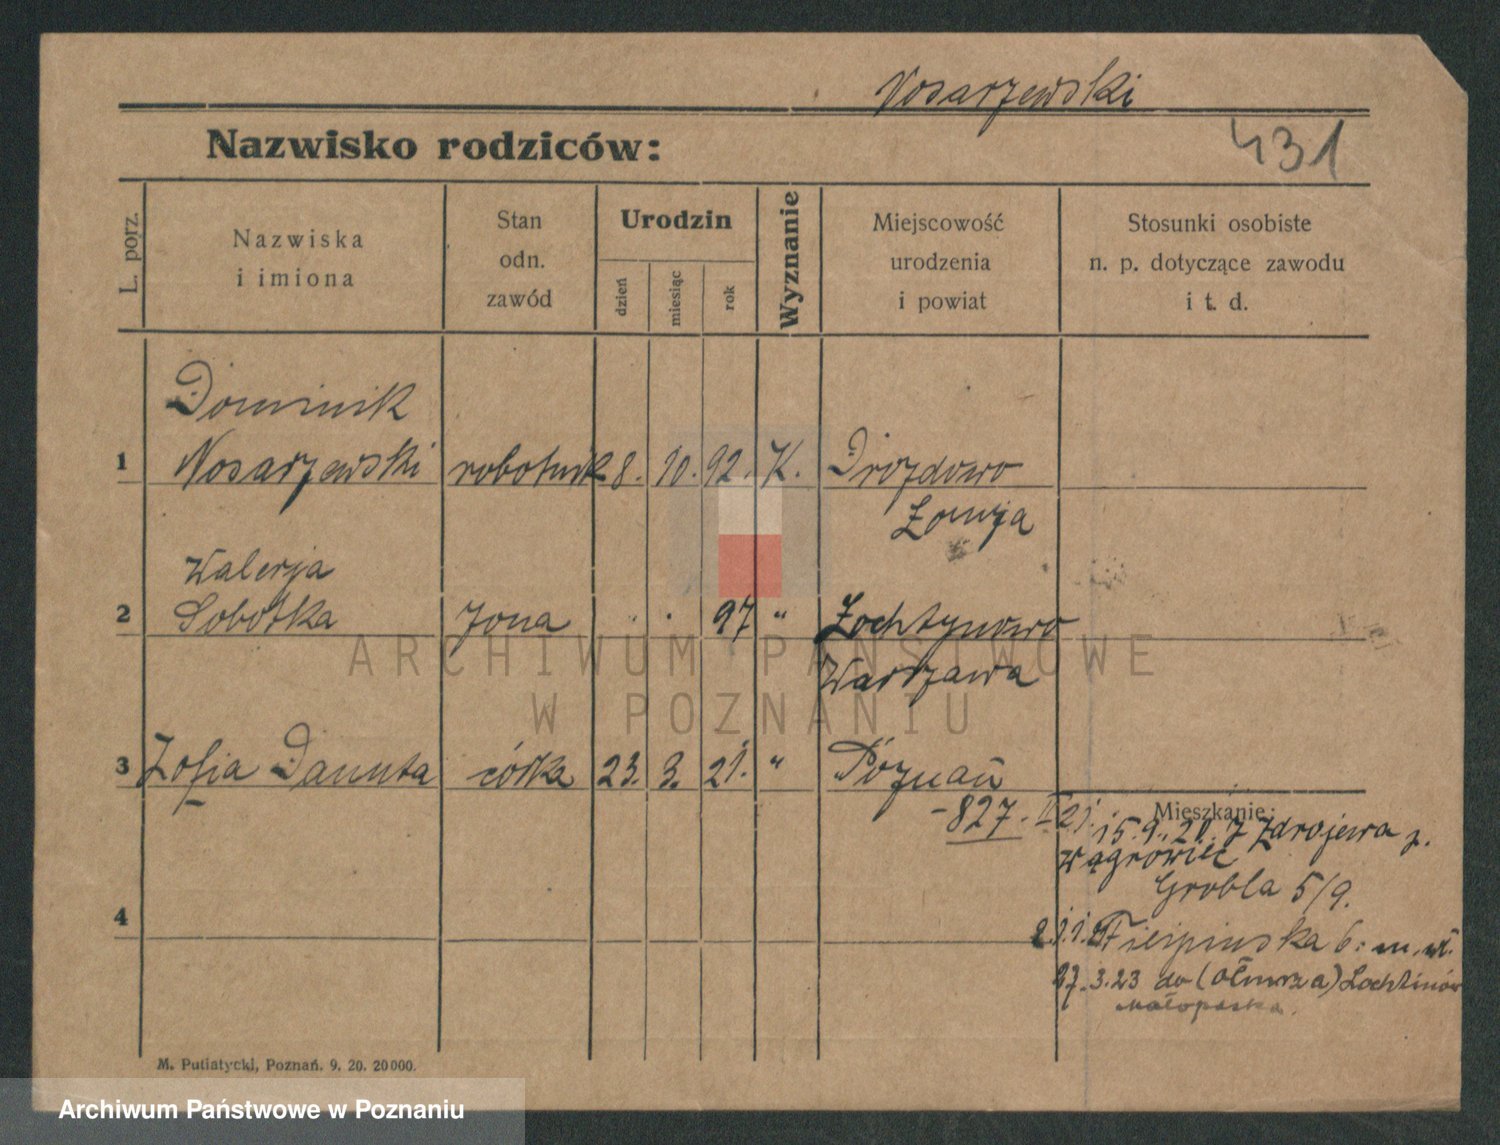 Nosarzewski
431
Nazwisko rodziców:
L. porz.
Nazwiska
i imiona
Stan
odn.
zawód
Urodzin
dzień
miesiąc
rok
Wyznanie
Miejscowość
urodzenia
i powiat
Stosunki osobiste
n. p. dotyczące zawodu
i t. d.
Dominik
1 Nosarzewski robotnik 8. 10. 92. K. Drozdowo
Łomża
Walerja
2 Sobotka żona 97 " Żochtynowo
Warszawa
3 Zofia Danuta córka 23. 3. 21. " Poznań
-827. II 21.
Mieszkanie:
15.9. 20. z Zdrojewa p.
Wągrowiec
Grobla 5/9.
4
6. m.
27.3.23 do
Małopolska.
M. Putiatycki, Poznań. 9. 20. 20000.
ARCHIWUM PAŃSTWOWE
W POZNANIU
Archiwum Państwowe w Poznaniu